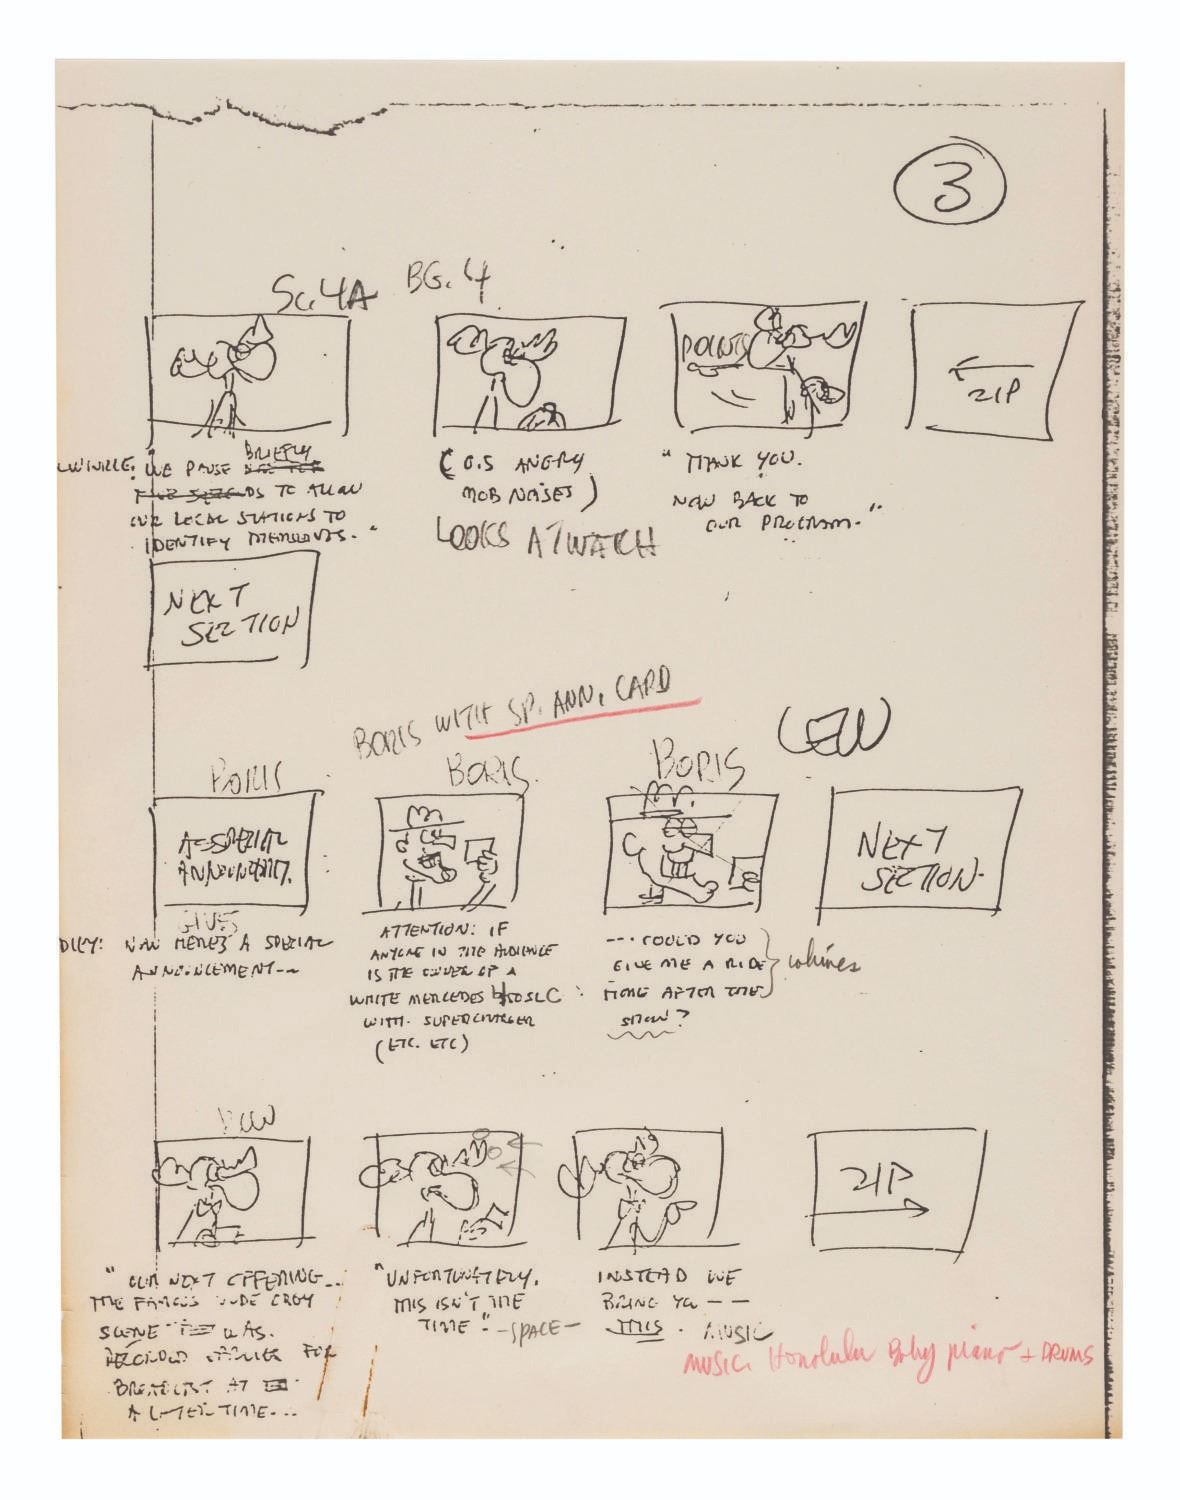 3
Sc. 4A BG. 4
POINTS
ZIP
"WE PAUSE BRIEFLY
TO ALLOW
OUR LOCAL STATIONS TO
IDENTIFY THEMSELVES."
(O.S ANGRY
MOB NOISES)
LOOKS AT WATCH
"THANK YOU.
NOW BACK TO
OUR PROGRAM."
NEXT
SECTION
BORIS WITH SP. ANN. CARD
BORIS
BORIS.
BORIS
A SPECIAL
ANNOUNCEMENT.
NEXT
SECTION.
GIVES
NOW HERE'S A SPECIAL
ANNOUNCEMENT--
ATTENTION: IF
ANYONE IN THE AUDIENCE
IS THE OWNER OF A
WHITE MERCEDES
WITH SUPERCHARGER
(ETC. ETC)
---COULD YOU
GIVE ME A RIDE
HOME AFTER THE
SHOW?
whines
ZIP
"OUR NEXT OFFERING..
THE FAMOUS
SCENE WAS
RECORDED EARLIER FOR
BROADCAST AT
A LATER TIME...
"UNFORTUNATELY,
THIS ISN'T THE
TIME" -SPACE-
INSTEAD WE
BRING YOU --
THIS. MUSIC
MUSIC. Honolulu Baby piano + DRUMS